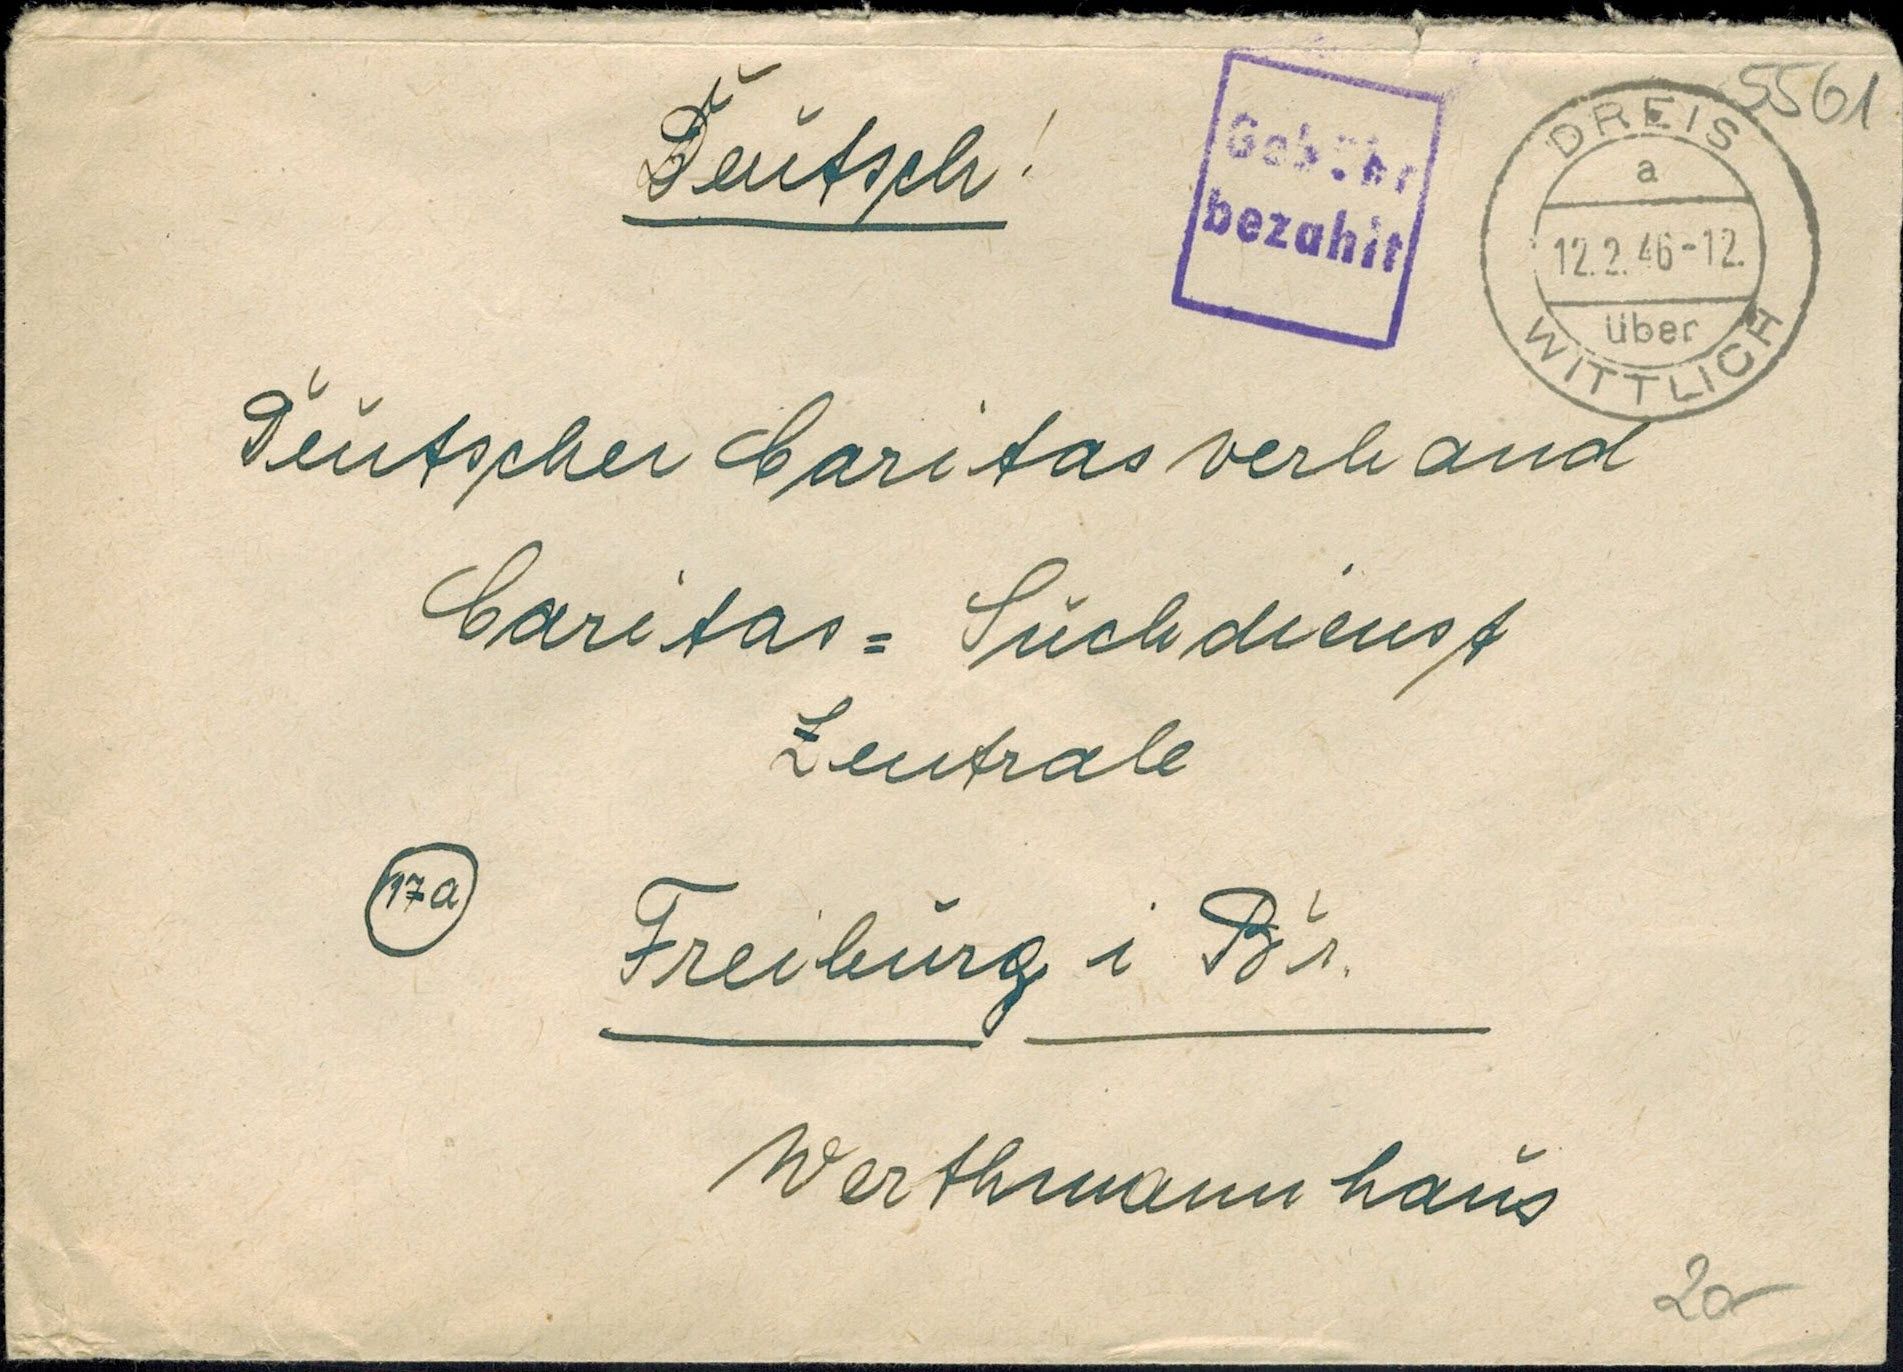 Deutsch!
Gebühr
bezahlt
5561
DREIS
a
12.2.46-12.
über
WITTLICH
Deutscher Caritasverband
Caritas = Suchdienst
Zentrale
17a
Freiburg i Br.
Werthmannhaus
20